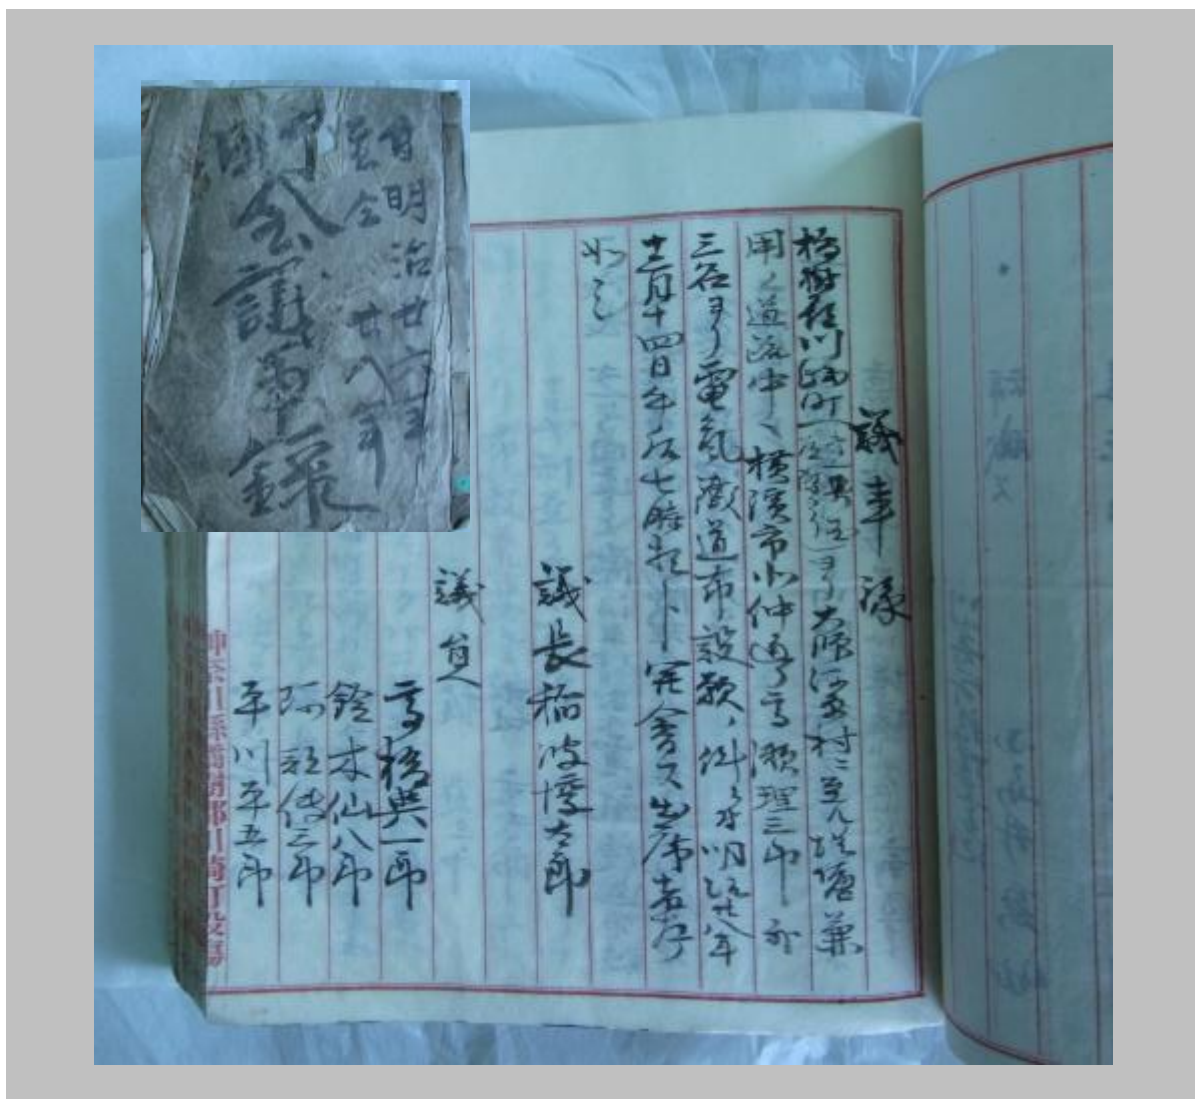 自明治廿六年
至仝廿八年
町会議事録
議事录
橘樹郡川崎町ヨリ大師河原村ニ至ル堤塘兼
用之道路中ヘ横濱市北仲通高瀬理三郎外
三名ヨリ電気鉄道布設願ノ件ニ付明治廿八年
十二月十四日午后七時ヨリ開会ス出席者左ノ
如シ
議長稲波慶太郎
議員
高橋與一郎
鈴木仙八郎
平川平五郎
神奈川縣橘樹郡川崎町役場